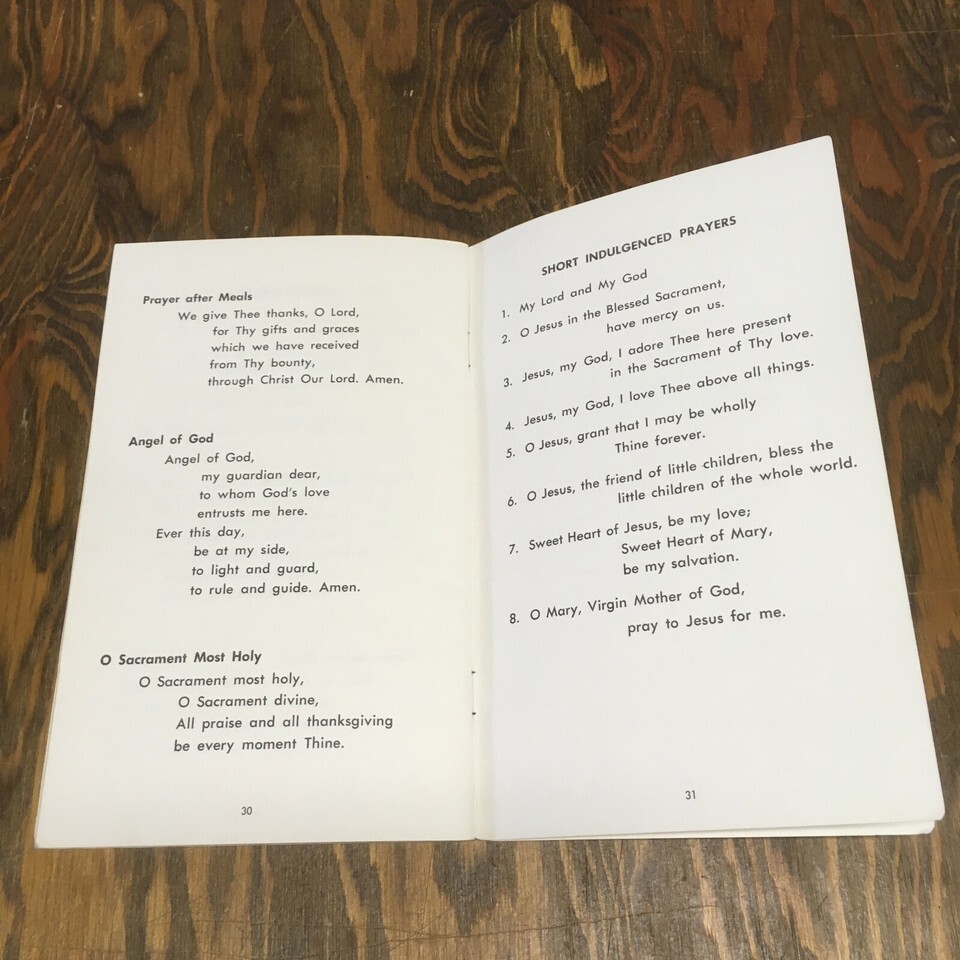 Prayer after Meals
We give Thee thanks, O Lord,
for Thy gifts and graces
which we have received
from Thy bounty,
through Christ Our Lord. Amen.
Angel of God
Angel of God,
my guardian dear,
to whom God's love
entrusts me here.
Ever this day,
be at my side,
to light and guard,
to rule and guide. Amen.
O Sacrament Most Holy
O Sacrament most holy,
O Sacrament divine,
All praise and all thanksgiving
be every moment Thine.
30
SHORT INDULGENCED PRAYERS
1. My Lord and My God
2. O Jesus in the Blessed Sacrament,
have mercy on us.
3. Jesus, my God, I adore Thee here present
in the Sacrament of Thy love.
4. Jesus, my God, I love Thee above all things.
5. O Jesus, grant that I may be wholly
Thine forever.
6. O Jesus, the friend of little children, bless the
little children of the whole world.
7. Sweet Heart of Jesus, be my love;
Sweet Heart of Mary,
be my salvation.
8. O Mary, Virgin Mother of God,
pray to Jesus for me.
31